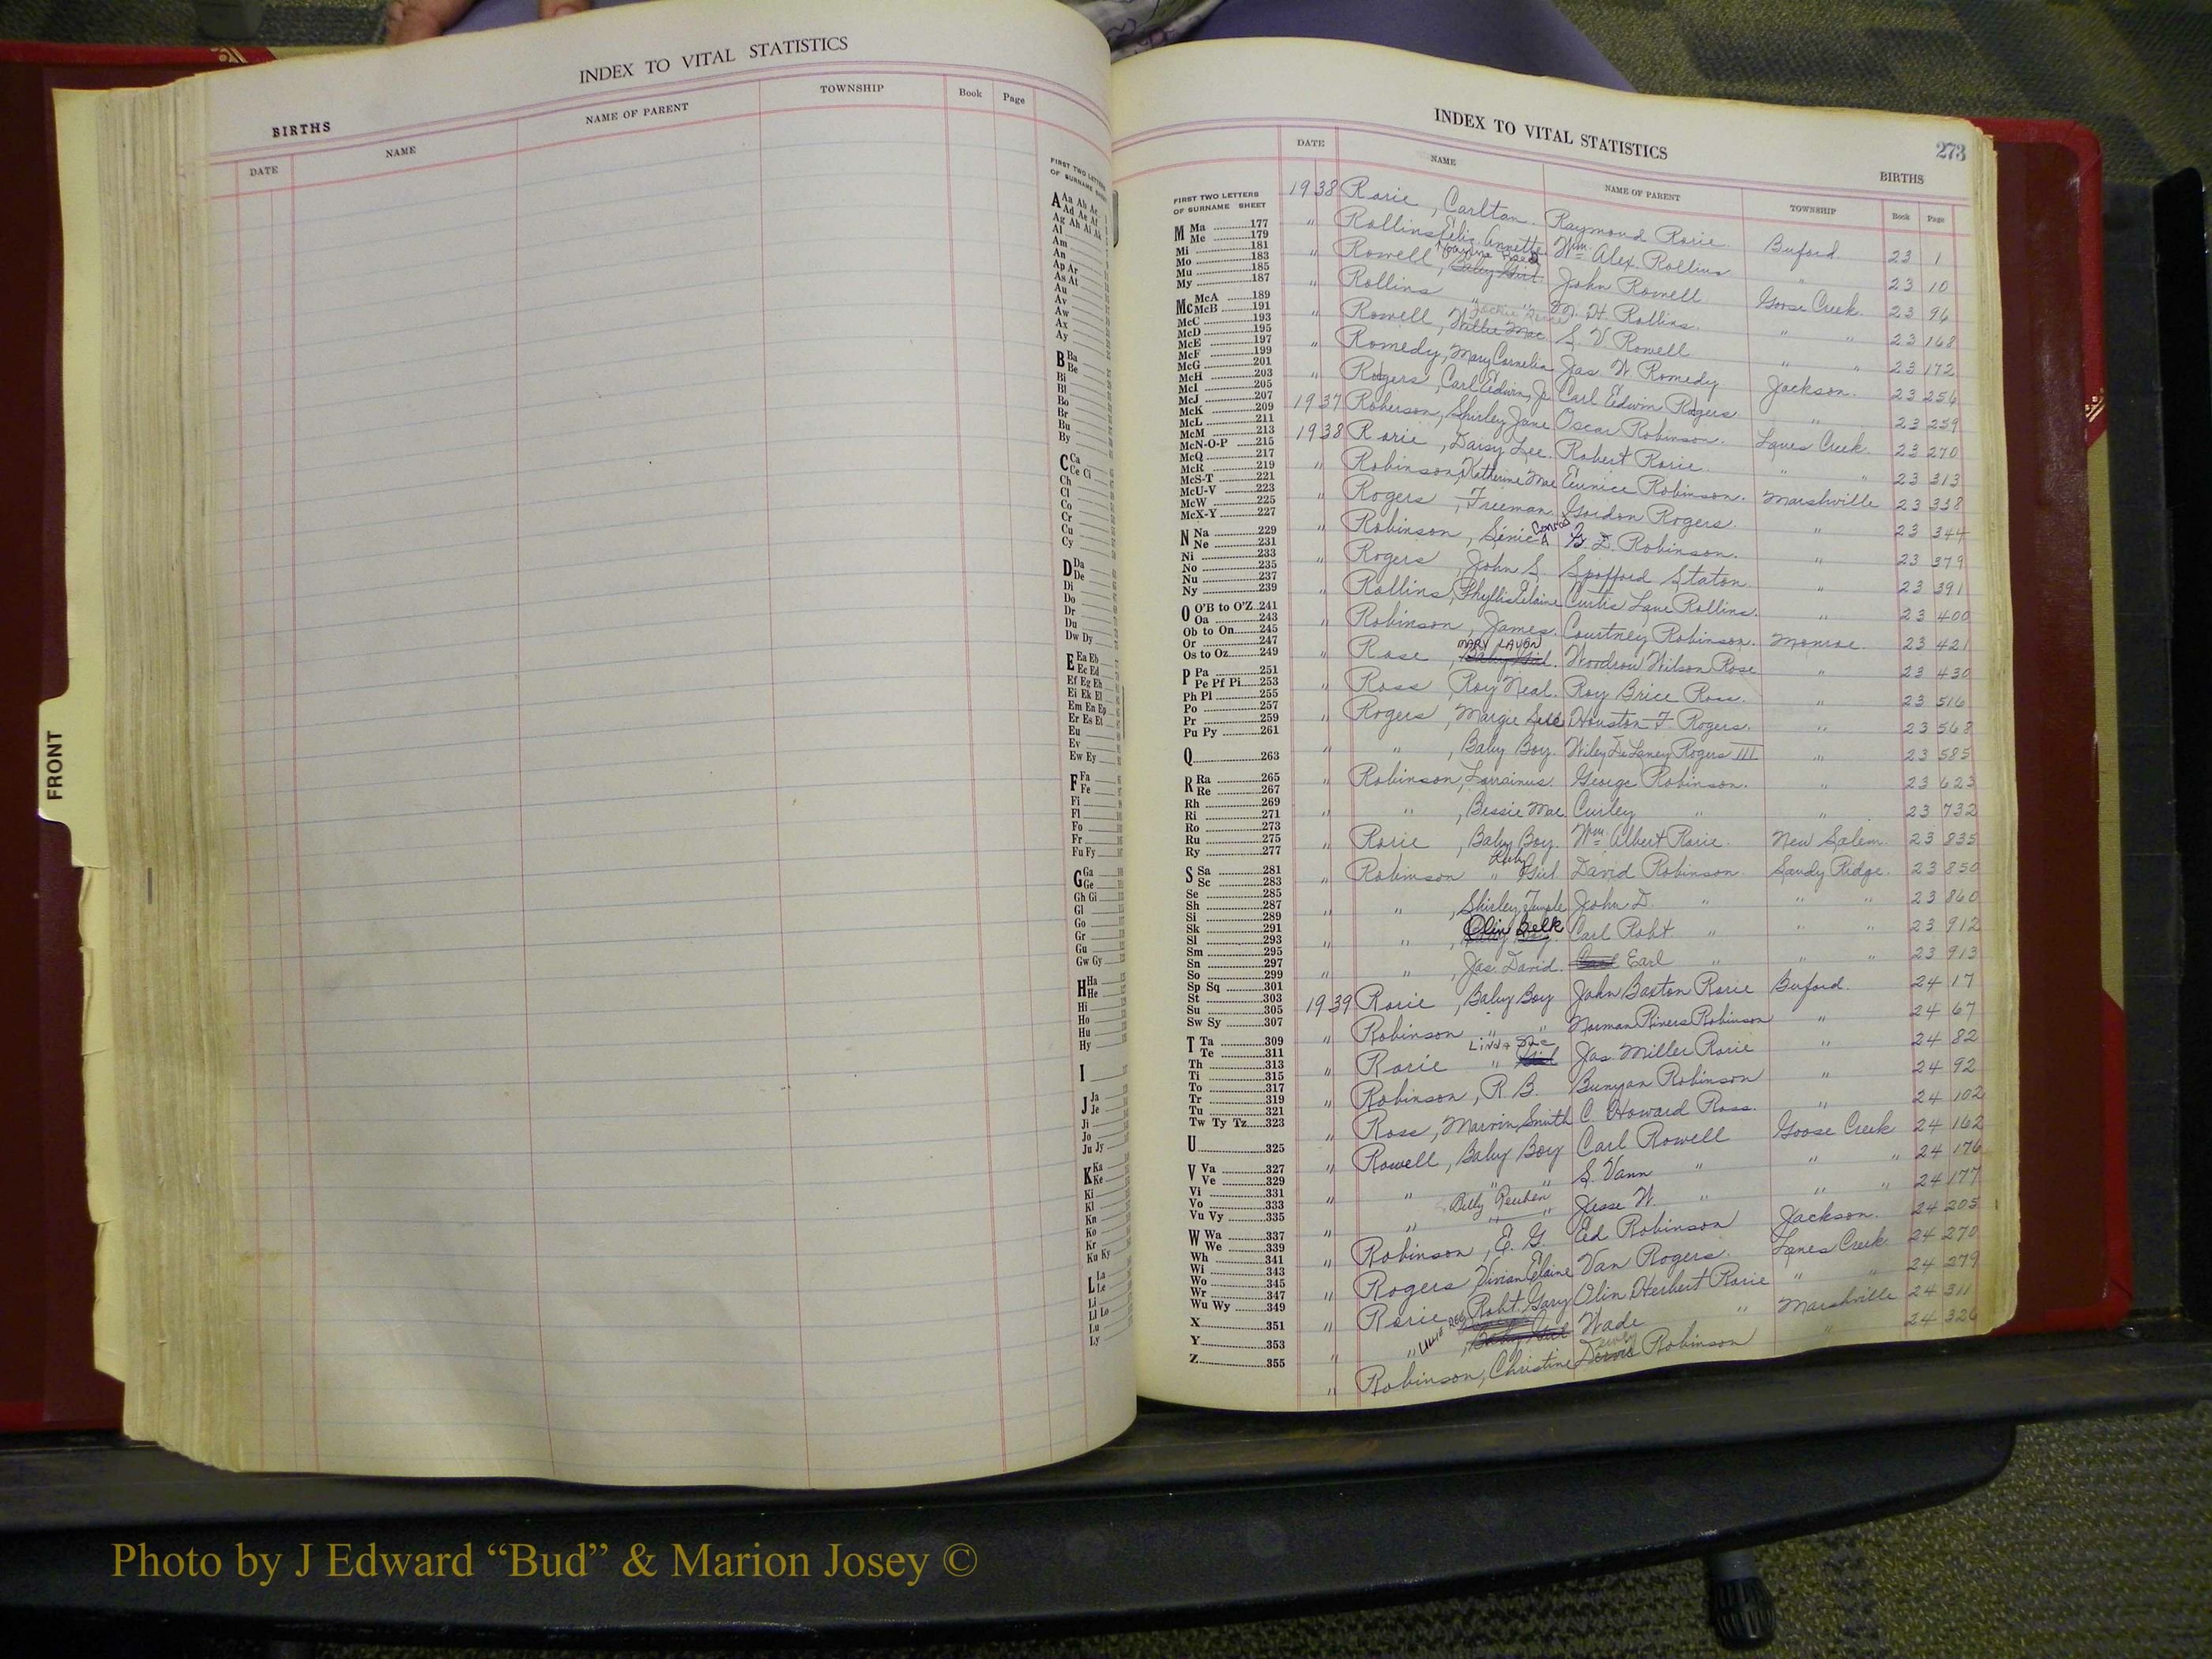 INDEX TO VITAL STATISTICS
BIRTHS
DATE NAME NAME OF PARENT TOWNSHIP Book Page
FRONT
FIRST TWO LETTERS
OF SURNAME SHEET
A Aa Ab Ac
Ad Ae Af
Ag Ah Ai Ak
Al
Am
An
Ap Ar
As At
Au
Av
Aw
Ax
Ay
B Ba
Be
Bi
Bl
Bo
Br
Bu
By
C Ca
Ce Ci
Ch
Cl
Co
Cr
Cu
Cy
D Da
De
Di
Do
Dr
Du
Dw Dy
E Ea Eb
Ec Ed
Ef Eg Eh
Ei Ek El
Em En Ep
Er Es Et
Eu
Ev
Ew Ey
F Fa
Fe
Fi
Fl
Fo
Fr
Fu Fy
G Ga
Ge
Gh Gi
Gl
Go
Gr
Gu
Gw Gy
H Ha
He
Hi
Ho
Hu
Hy
I
J Ja
Je
Ji
Jo
Ju Jy
K Ka
Ke
Ki
Kl
Kn
Ko
Kr
Ku Ky
L La
Le
Li
Ll Lo
Lu
Ly
INDEX TO VITAL STATISTICS
273
BIRTHS
DATE NAME NAME OF PARENT TOWNSHIP Book Page
FIRST TWO LETTERS
OF SURNAME SHEET
M Ma 177
Me 179
Mi 181
Mo 183
Mu 185
My 187
Mc McA 189
McB 191
McC 193
McD 195
McE 197
McF 199
McG 201
McH 203
McI 205
McJ 207
McK 209
McL 211
McM 213
McN-O-P 215
McQ 217
McR 219
McS-T 221
McU-V 223
McW 225
McX-Y 227
N Na 229
Ne 231
Ni 233
No 235
Nu 237
Ny 239
O O'B to O'Z 241
Oa 243
Ob to On 245
Or 247
Os to Oz 249
P Pa 251
Pe Pf Pi 253
Ph Pl 255
Po 257
Pr 259
Pu Py 261
Q 263
R Ra 265
Re 267
Rh 269
Ri 271
Ro 273
Ru 275
Ry 277
S Sa 281
Sc 283
Se 285
Sh 287
Si 289
Sk 291
Sl 293
Sm 295
Sn 297
So 299
Sp Sq 301
St 303
Su 305
Sw Sy 307
T Ta 309
Te 311
Th 313
Ti 315
To 317
Tr 319
Tu 321
Tw Ty Tz 323
U 325
V Va 327
Ve 329
Vi 331
Vo 333
Vu Vy 335
W Wa 337
We 339
Wh 341
Wi 343
Wo 345
Wr 347
Wu Wy 349
X 351
Y 353
Z 355
1938 Rorie, Carlton. Raymond Rorie. Buford. 23 1
" Rollins, Annette Wm. Alex. Rollins " 23 10
" Rowell, Baby Girl. John Rowell Goose Creek. 23 96
" Rollins " " M. H. Rollins. " " 23 168
" Rowell, Willie Mae. S. V Rowell " " 23 172
" Romedy, Mary Cornelia Jas. W Romedy Jackson. 23 256
" Rogers, Carl Edwin, Jr. Carl Edwin Rogers " 23 259
1937 Roberson, Shirley Jane Oscar Robinson. Lanes Creek. 23 270
1938 Rorie, Daisy Lee. Robert Rorie. " " 23 313
" Robinson, Katherine Mae Eunice Robinson. Marshville 23 338
" Rogers, Freeman. Gordon Rogers. " 23 344
" Robinson, Conrad G. D. Robinson. " 23 379
" Rogers, John S. Spofford Staton " 23 391
" Rollins, Phyllis Elaine Curtis Lane Rollins. " 23 400
" Robinson, James. Courtney Robinson. Monroe. 23 421
" Rose, MARY LAVON Baby Girl. Woodrow Wilson Rose " 23 430
" Ross, Roy Neal. Roy Brice Ross. " 23 516
" Rogers, Margie Houston F. Rogers. " 23 568
" ", Baby Boy. Wiley DeLaney Rogers III " 23 585
" Robinson, Lorrainus. George Robinson. " 23 623
" ", Bessie Mae Curley " " 23 732
" Rorie, Baby Boy. Wm. Albert Rorie. New Salem. 23 835
" Robinson " Ruby Girl David Robinson Sandy Ridge. 23 850
" ", Shirley Temple John D. " " " 23 860
" ", Olin Belk Carl Robt. " " " 23 912
" ", Jas. David. Earl " " " 23 913
1939 Rorie, Baby Boy John Baxton Rorie Buford. 24 17
" Robinson " " Norman Rivers Robinson " 24 67
" Rorie " Linda Sue Girl Jas. Miller Rorie " 24 82
" Robinson, R. B. Bunyan Robinson " 24 92
" Ross, Marvin Smith C. Howard Ross. " 24 102
" Rowell, Baby Boy Carl Rowell Goose Creek 24 162
" " " " S. Vann " " " 24 176
" " Billy Reuben " " Jesse W. " " " 24 177
" Robinson, E. G. Ed Robinson Jackson. 24 205
" Rogers Vivian Elaine Van Rogers. Lanes Creek 24 270
" Rorie, Robt. Gary Olin Herbert Rorie " " 24 279
" ", Baby Girl Wade " Marshville 24 311
" Robinson, Christine Robinson " 24 326
Photo by J Edward “Bud” & Marion Josey ©